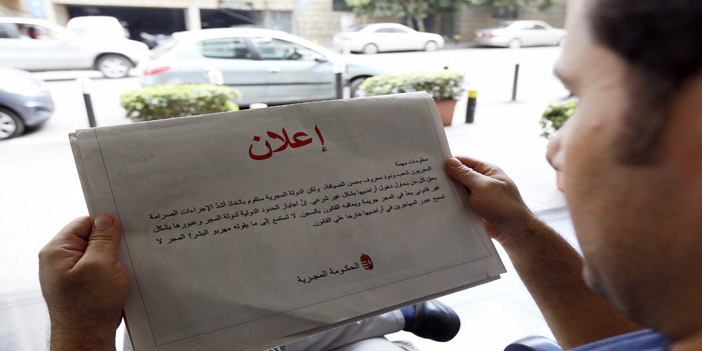 إعلان
معلومات مهمة
المجريون شعب ودود معروف بحسن الضيافة، ولكن الدولة المجرية ستقوم بأتخاذ أشدّ الإجراءات الصرامة
بحق كل من يحاول دخول أراضيها بشكل غير شرعي. إنّ اجتياز الحدود الدولية لدولة المجر وعبورها بشكل
غير قانوني يعدّ في المجر جريمة ويعاقبه القانون بالسجن. لا تستمع إلى ما يقوله مهربو البشر! المجر لا
تسمح بعبور المهاجرين في أراضيها خارجا على القانون.
الحكومة المجرية